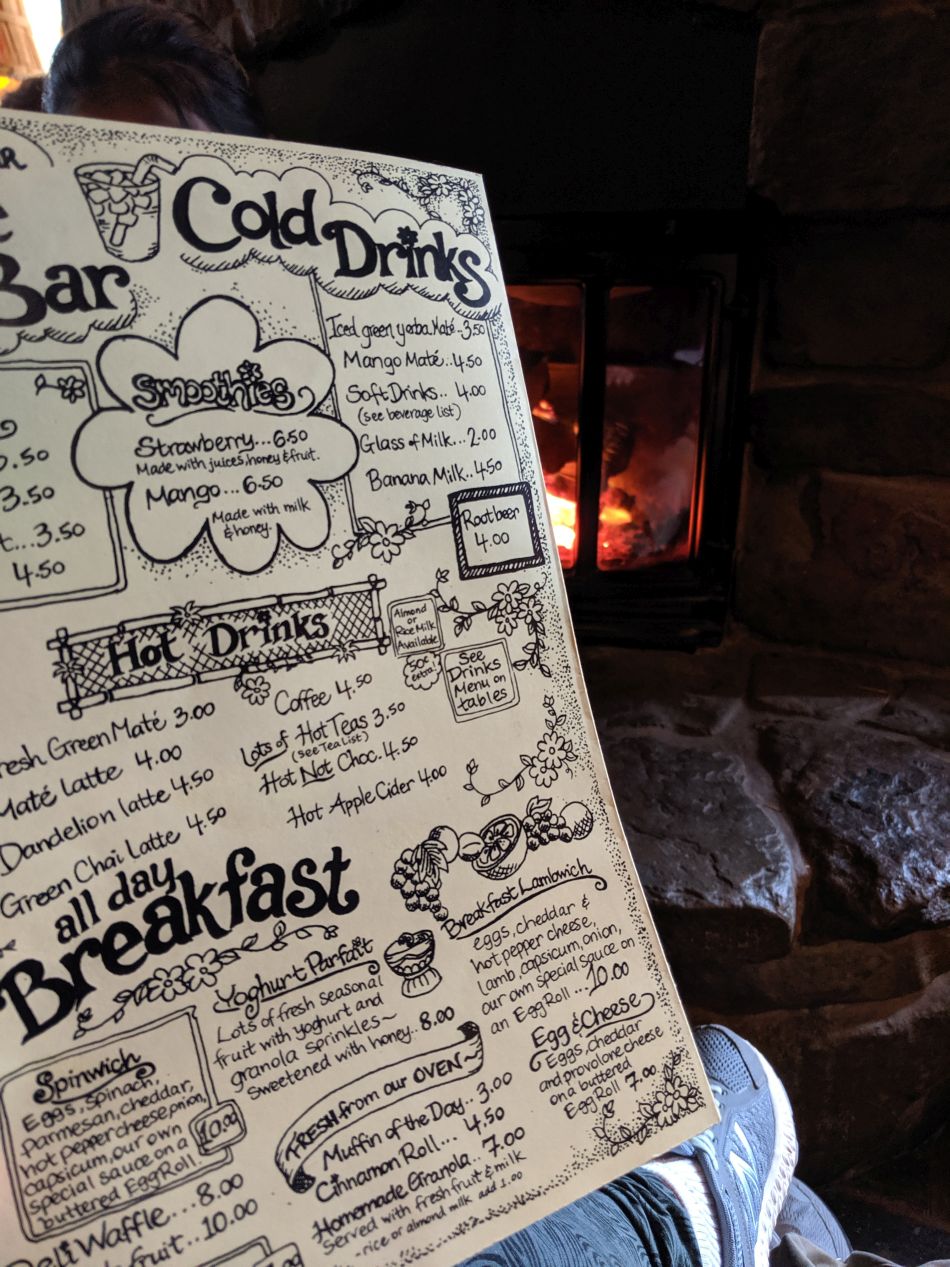 Bar
Cold
Drinks
Iced green yerba Maté..3.50
Mango Maté..4.50
Soft Drinks.. 4.00
(see beverage list)
Glass of Milk...2.00
Banana Milk..4.50
Rootbeer
4.00
Smoothies
Strawberry...6.50
Made with juices, honey & fruit.
Mango...6.50
Made with milk
& honey.
.50
3.50
t...3.50
4.50
Hot Drinks
Almond
or
Rice Milk
Available
50¢
extra
See
Drinks
Menu on
tables
resh Green Maté 3.00
Maté latte 4.00
Dandelion latte 4.50
Green Chai Latte 4.50
Coffee 4.50
Lots of Hot Teas 3.50
(see Tea List)
Hot Not Choc. 4.50
Hot Apple Cider 4.00
all day
Breakfast
Spinwich
Eggs, spinach,
parmesan, cheddar,
hot pepper cheese, onion,
capsicum, our own
special sauce on a
buttered EggRoll
10.00
Deli Waffle... 8.00
fruit.. 10.00
Yoghurt Parfait
Lots of fresh seasonal
fruit with yoghurt and
granola sprinkles~
Sweetened with honey.. 8.00
FRESH from our OVEN~
Muffin of the Day.. 3.00
Cinnamon Roll... 4.50
Homemade Granola.. 7.00
served with fresh fruit & milk
-rice or almond milk add 1.00
Breakfast Lambwich
eggs, cheddar &
hot pepper cheese,
lamb, capsicum, onion,
our own special sauce on
an EggRoll ... 10.00
Egg & Cheese
Eggs, cheddar
and provolone cheese
on a buttered
EggRoll 7.00